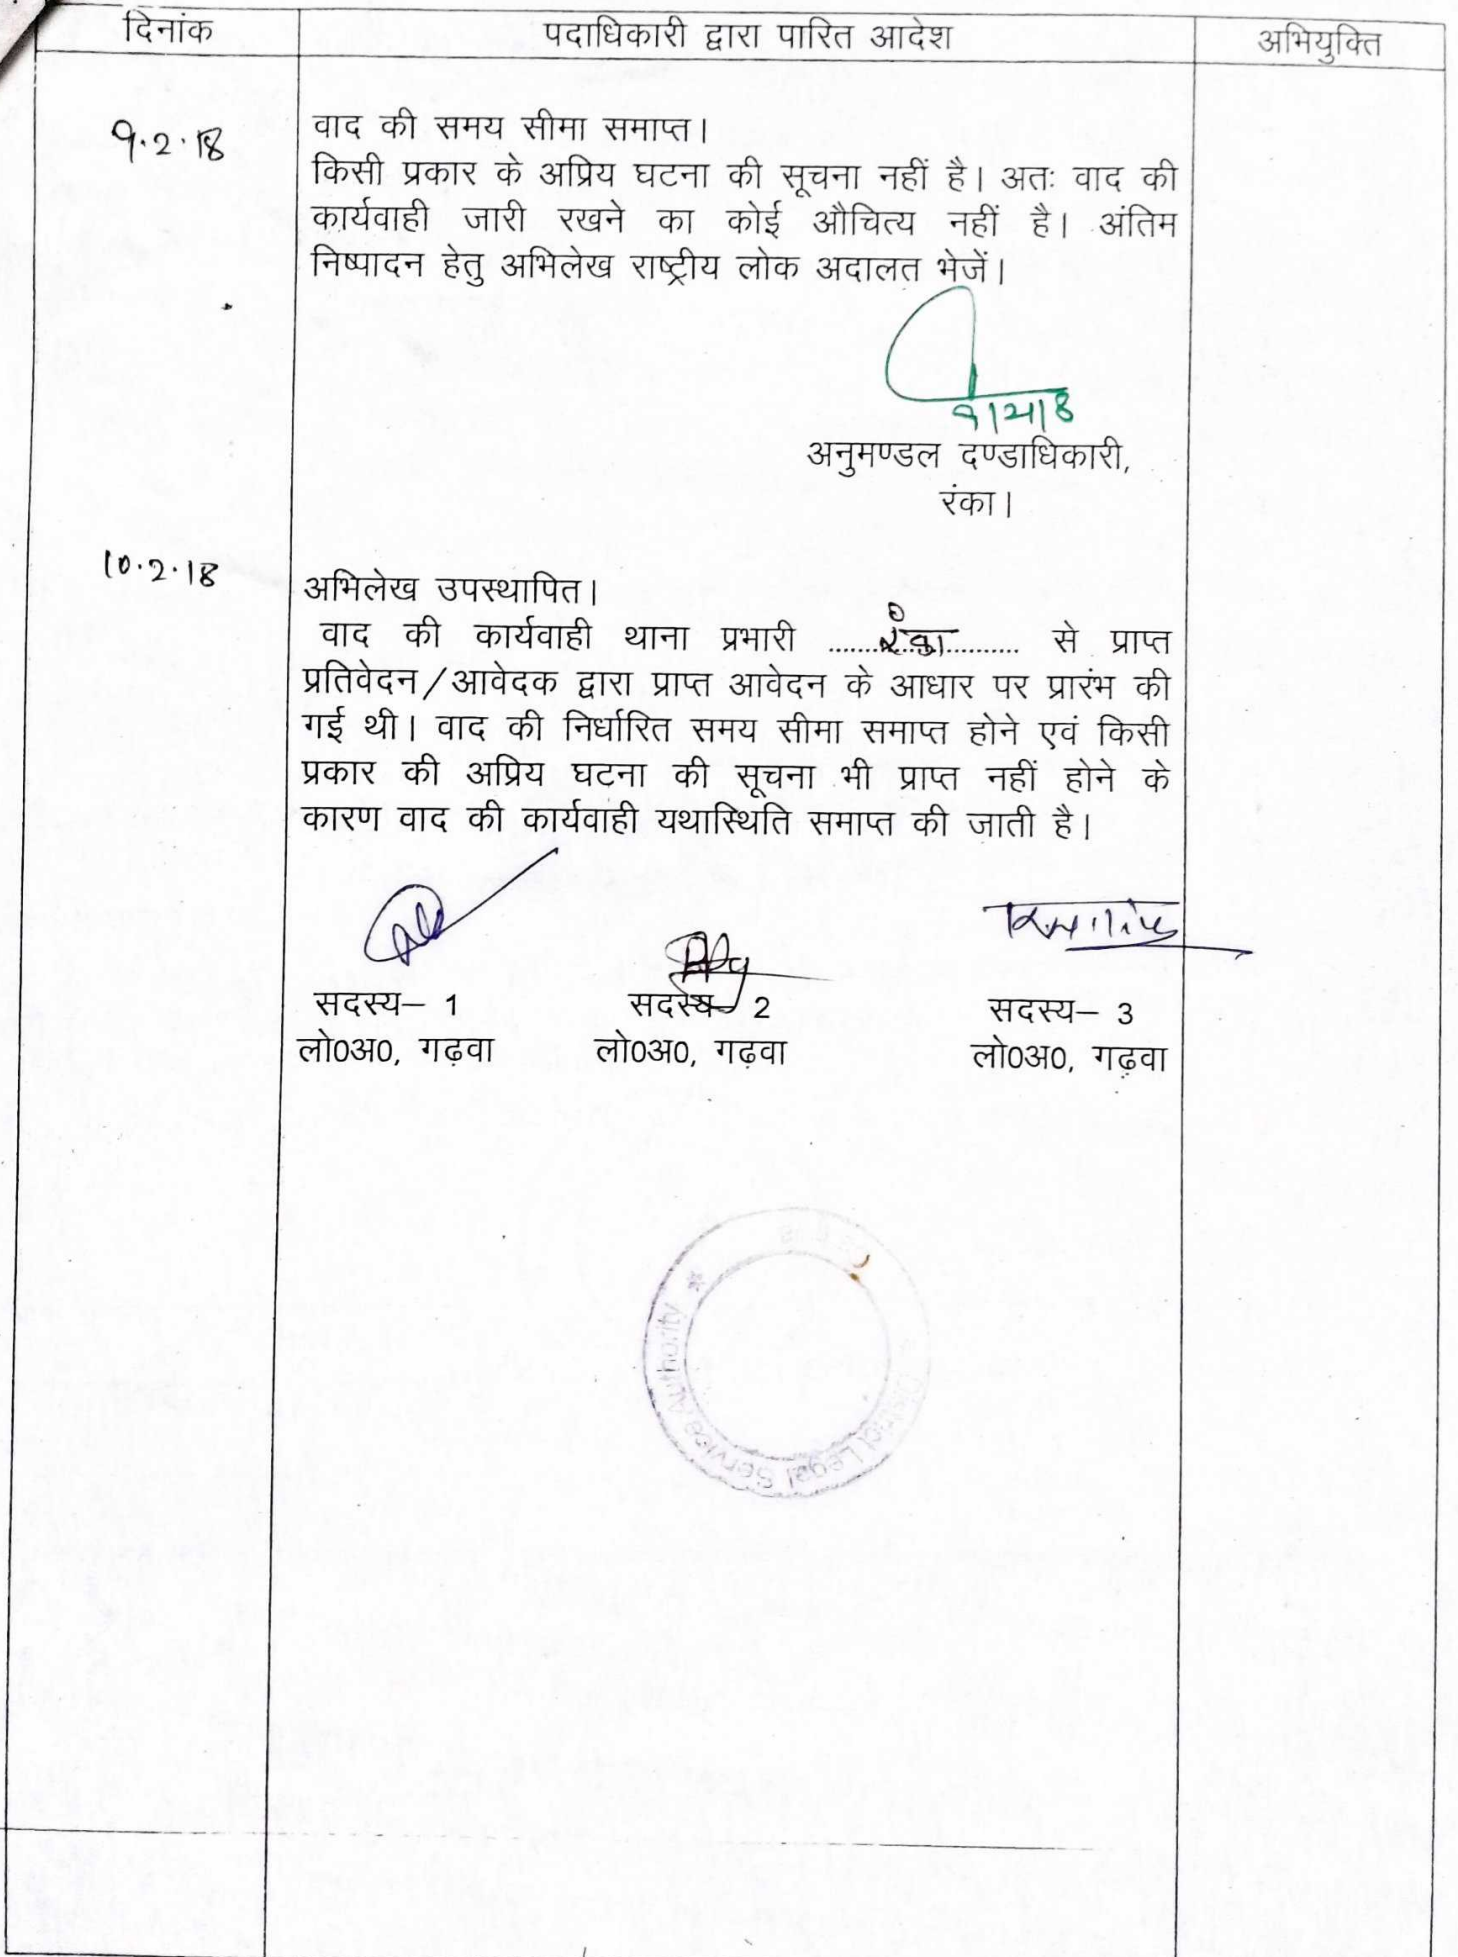 दिनांक पदाधिकारी द्वारा पारित आदेश अभियुक्ति
9.2.18
वाद की समय सीमा समाप्त।
किसी प्रकार के अप्रिय घटना की सूचना नहीं है। अतः वाद की
कार्यवाही जारी रखने का कोई औचित्य नहीं है। अंतिम
निष्पादन हेतु अभिलेख राष्ट्रीय लोक अदालत भेजें।
अनुमण्डल दण्डाधिकारी,
रंका।
10.2.18
अभिलेख उपस्थापित।
वाद की कार्यवाही थाना प्रभारी ........रंका............ से प्राप्त
प्रतिवेदन/आवेदक द्वारा प्राप्त आवेदन के आधार पर प्रारंभ की
गई थी। वाद की निर्धारित समय सीमा समाप्त होने एवं किसी
प्रकार की अप्रिय घटना की सूचना भी प्राप्त नहीं होने के
कारण वाद की कार्यवाही यथास्थिति समाप्त की जाती है।
सदस्य– 1 सदस्य– 2 सदस्य– 3
लो0अ0, गढ़वा लो0अ0, गढ़वा लो0अ0, गढ़वा
District Legal Service Authority *